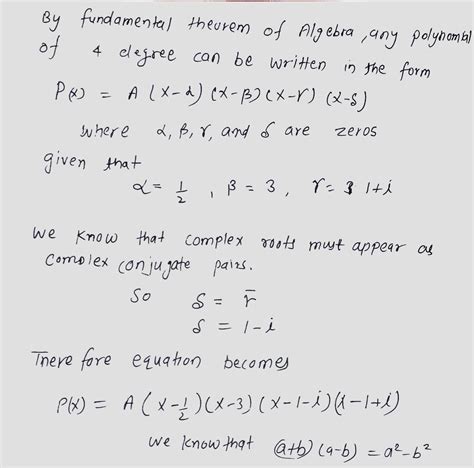 By fundamental theorem of Algebra, any polynomial
of 4 degree can be written in the form
P(x) = A (x-α) (x-β) (x-γ) (x-δ)
where α, β, γ, and δ are zeros
given that
α = 1/2 , β = 3, γ = 3 1+i
We know that complex roots must appear as
complex conjugate pairs.
So δ = γ̄
δ = 1-i
There fore equation becomes
P(x) = A (x-1/2) (x-3) (x-1-i) (x-1+i)
we know that (a+b) (a-b) = a²-b²